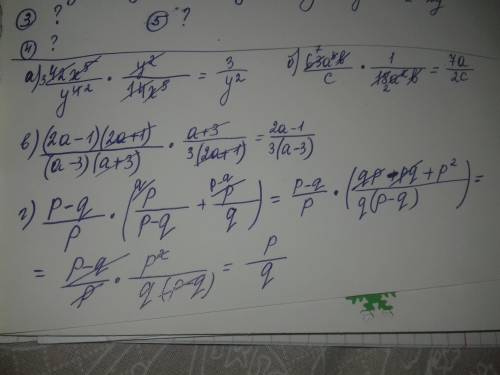 ③ ? ⑤ ?
④ ?
а) 3 42x⁵/y⁴ ² · y²/14x⁵ = 3/y² б) 7 63a³b/c · 1/18a²b 2 = 7a/2c
в) (2a-1)(2a+1)/(a-3)(a+3) · a+3/3(2a+1) = 2a-1/3(a-3)
г) p-q/p · (q p/p-q + p-q p/q) = p-q/p · (qp + pq + p²/q(p-q)) =
= p-q/p · p²/q(p-q) = p/q